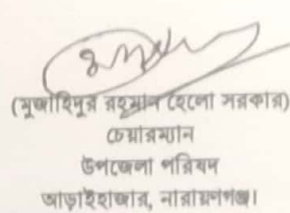 (মুজাহিদুর রহমান হেলো সরকার)
চেয়ারম্যান
উপজেলা পরিষদ
আড়াইহাজার, নারায়ণগঞ্জ।